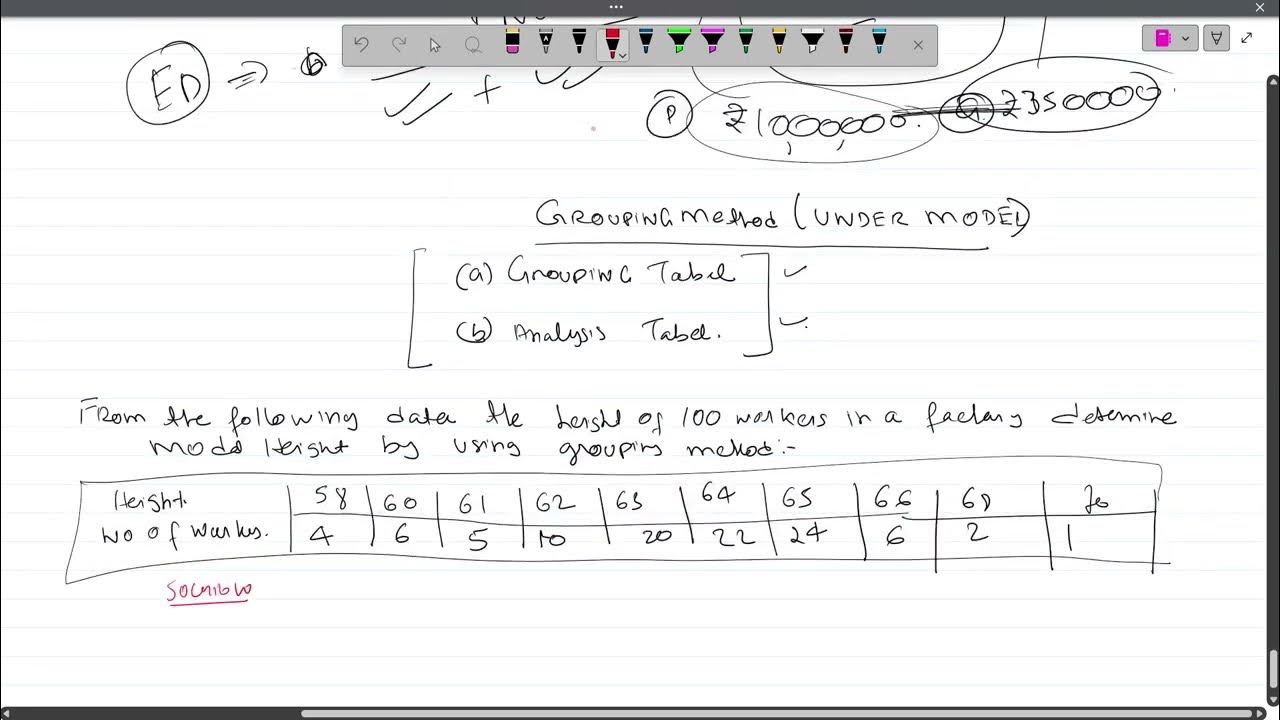 ED ⇒
+
P ₹1000,000. Q ₹350000.
GROUPING Method (UNDER MODEL)
(a) GROUPING Tabel ✓
(b) Analysis Tabel. ✓
From the following data the height of 100 workers in a factory determine
height by using grouping method:-
Height 58 60 61 62 63 64 65 66 68 70
No of workes. 4 6 5 10 20 22 24 6 2 1